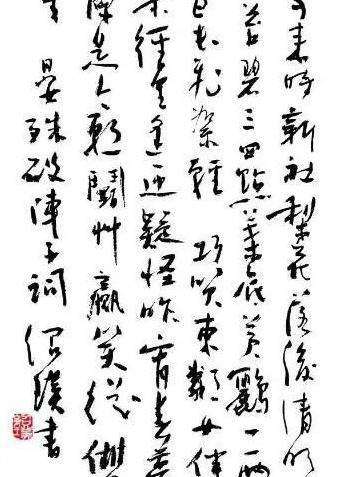 来時新社梨花落後清明
苔碧三四點葉底黄鸝一兩
日長飛絮輕 巧笑東鄰女伴
桑徑里逢迎疑怪昨宵春夢
是今朝鬭草贏笑從雙
生 晏殊破陣子詞 書